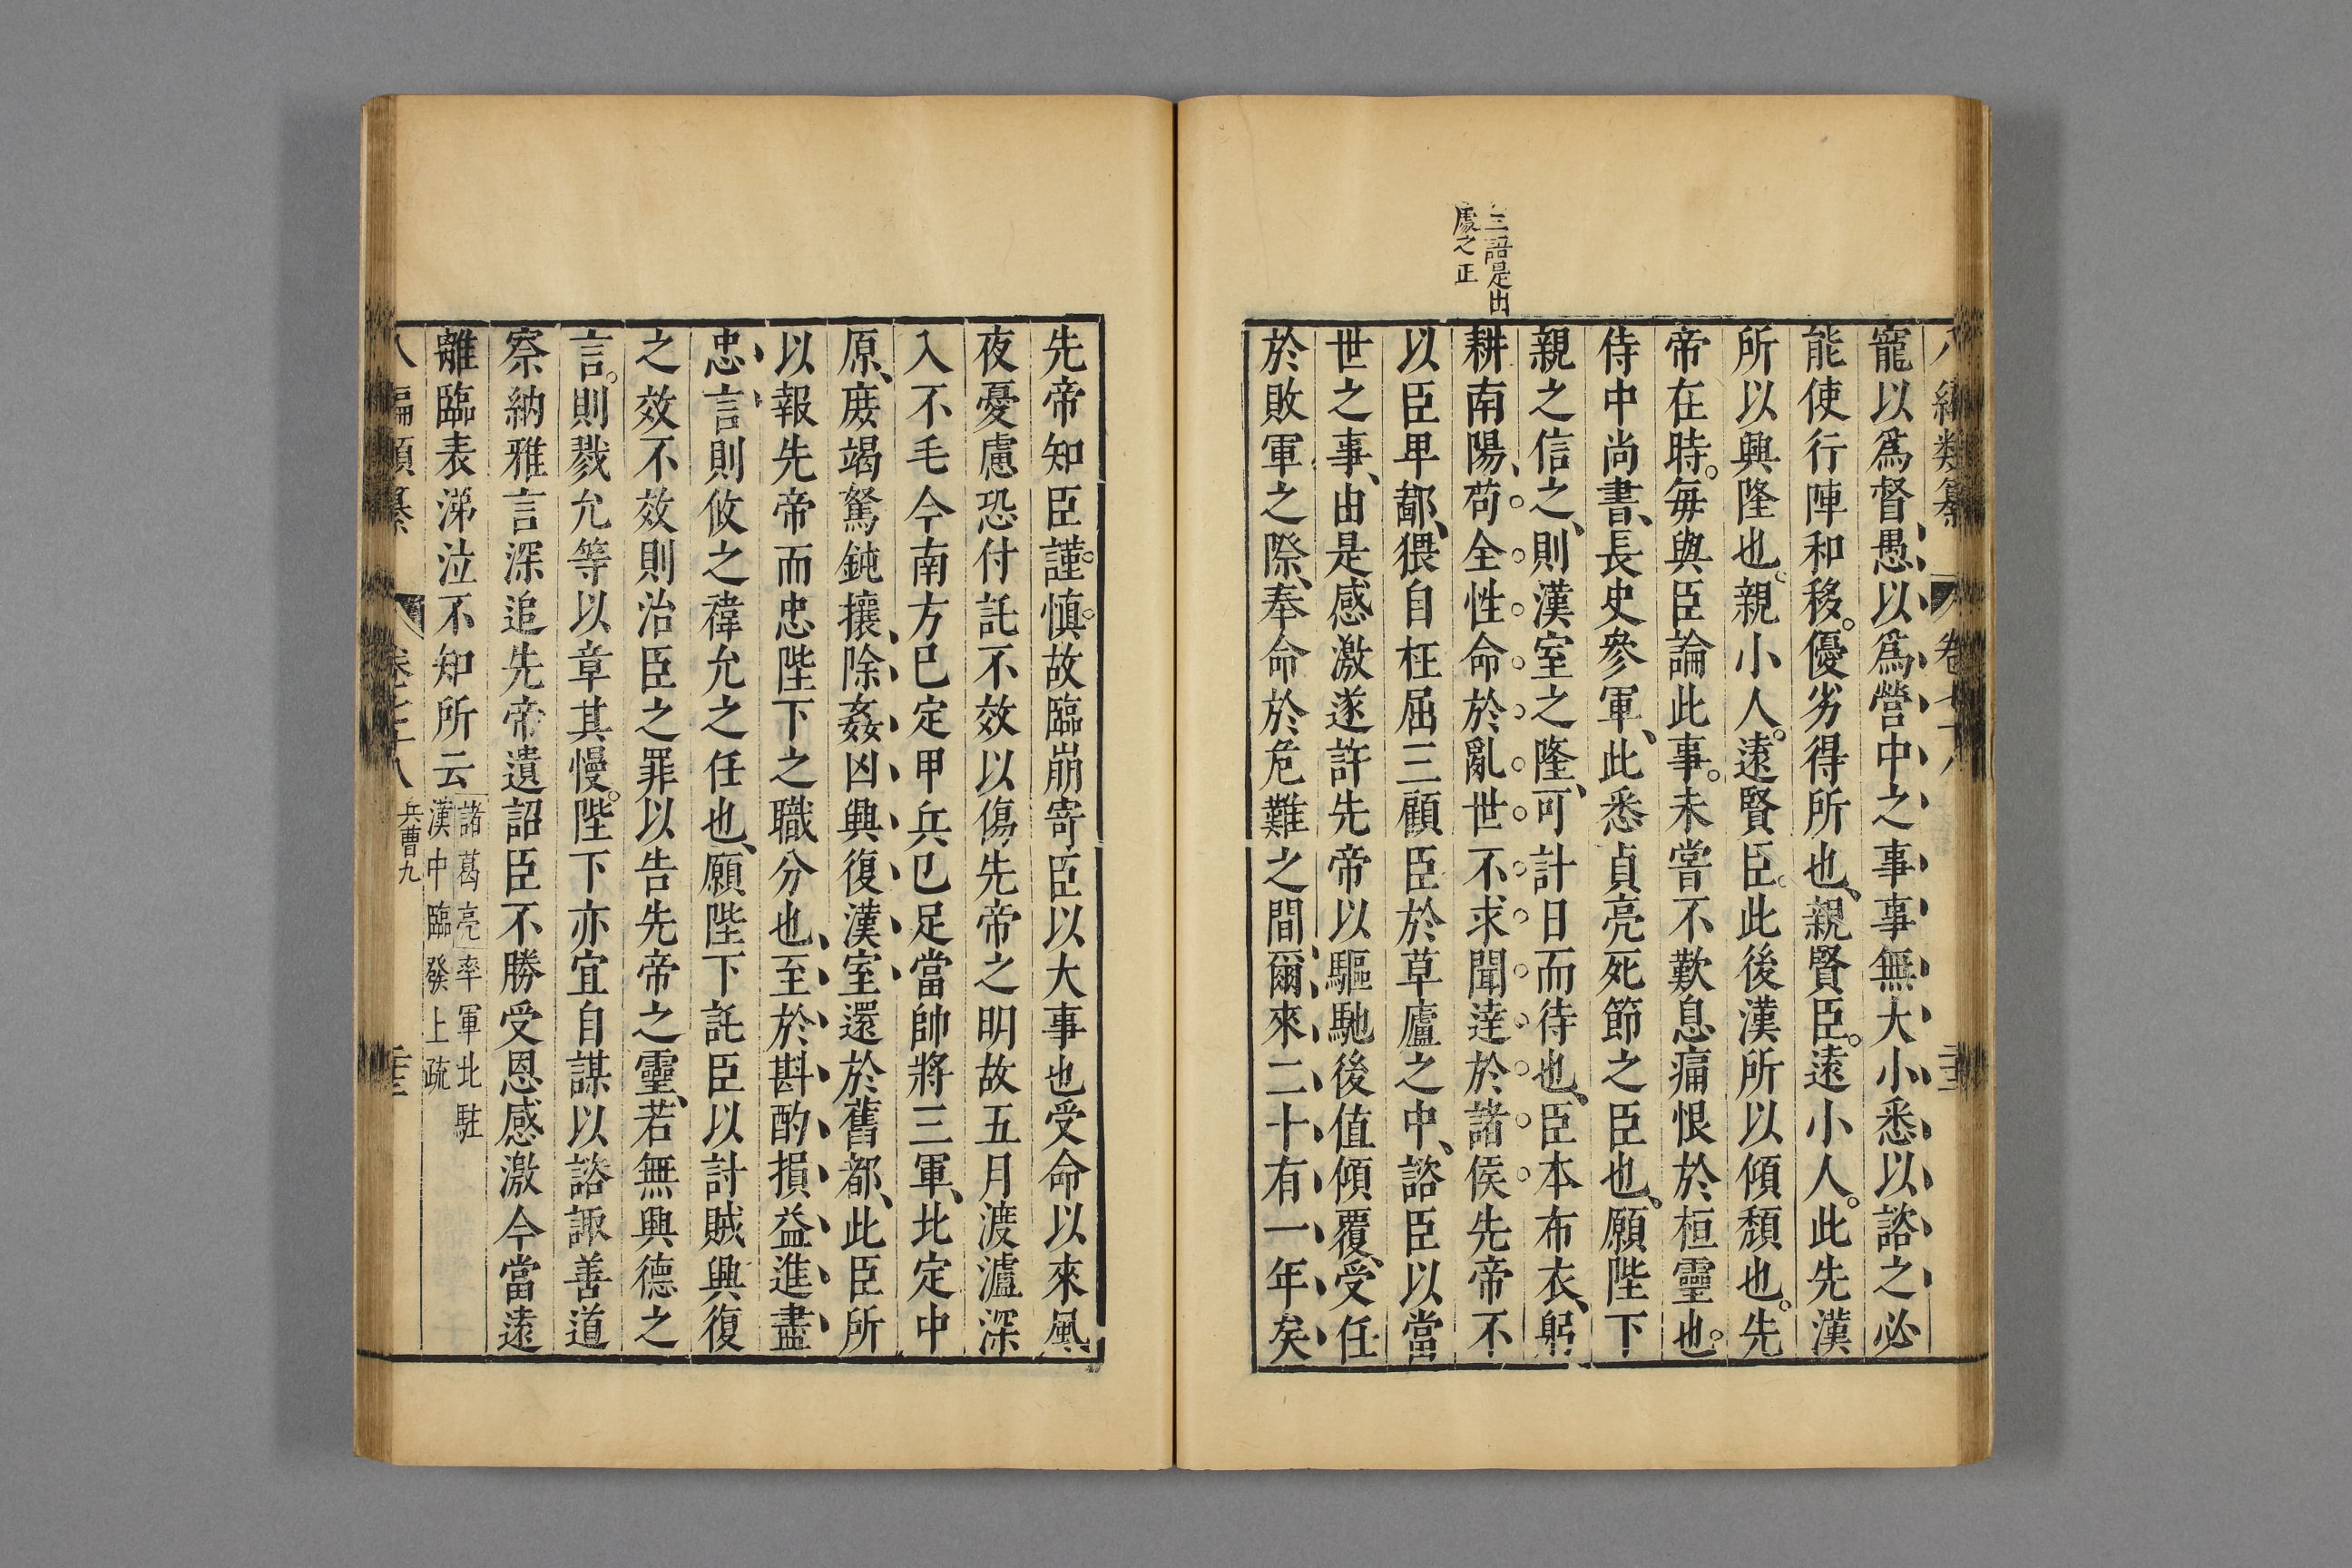 三語是出
處之正
寵以爲督愚以爲營中之事事無大小悉以諮之必
能使行陣和移優劣得所也親賢臣遠小人此先漢
所以興隆也親小人遠賢臣此後漢所以傾頽也先
帝在時毎與臣論此事未嘗不歎息痛恨於桓靈也
侍中尚書長史參軍此悉貞亮死節之臣也願陛下
親之信之則漢室之隆可計日而待也臣本布衣躬
耕南陽苟全性命於亂世不求聞達於諸侯先帝不
以臣卑鄙猥自枉屈三顧臣於草廬之中諮臣以當
世之事由是感激遂許先帝以驅馳後值傾覆受任
於敗軍之際奉命於危難之間爾來二十有一年矣
先帝知臣謹慎故臨崩寄臣以大事也受命以來夙
夜憂慮恐付託不效以傷先帝之明故五月渡瀘深
入不毛今南方已定甲兵已足當帥將三軍北定中
原庶竭駑鈍攘除姦凶興復漢室還於舊都此臣所
以報先帝而忠陛下之職分也至於斟酌損益進盡
忠言則攸之禕允之任也願陛下託臣以討賊興復
之效不效則治臣之罪以告先帝之靈若無興德之
言則戮允等以章其慢陛下亦宜自謀以諮諏善道
察納雅言深追先帝遺詔臣不勝受恩感激今當遠
離臨表涕泣不知所云
諸葛亮率軍北駐
漢中臨發上疏
八編類纂 卷七十八 兵曹九